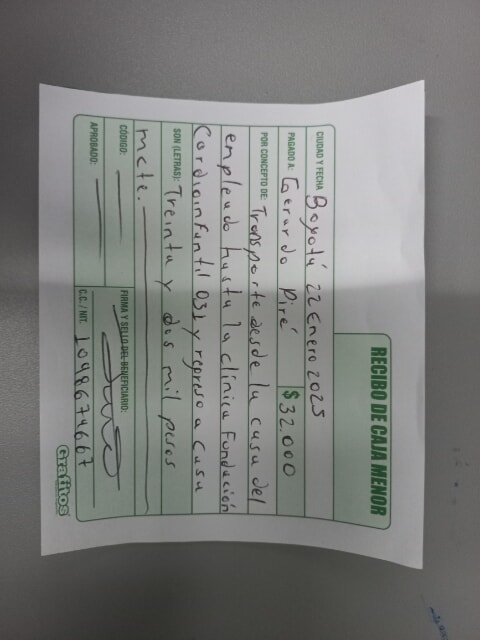 RECIBO DE CAJA MENOR
CIUDAD Y FECHA Bogotá 22 Enero 2025
PAGADO A: Gerardo Piré $ 32.000
POR CONCEPTO DE: Transporte desde la casa del
empleado hasta la clínica Fundación
Cardioinfantil 031 y regreso a casa
SON (LETRAS): Treinta y dos mil pesos
mcte.
CÓDIGO:
FIRMA Y SELLO DEL BENEFICIARIO:
APROBADO:
C.C. / NIT. 1098674667
Grafitos